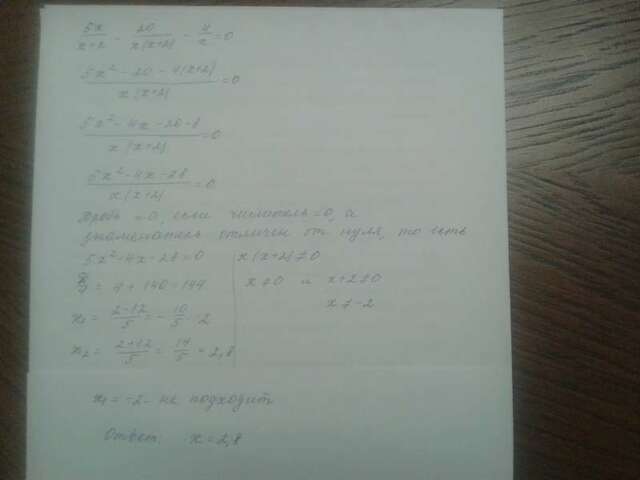 5x/(x+2) - 20/(x(x+2)) - 4/x = 0
(5x² - 20 - 4(x+2))/(x(x+2)) = 0
(5x² - 4x - 20 - 8)/(x(x+2)) = 0
(5x² - 4x - 28)/(x(x+2)) = 0
Дробь = 0, если числитель = 0, а
знаменатель отличен от нуля, то есть
5x² - 4x - 28 = 0 | x(x+2) ≠ 0
D/4 = 4 + 140 = 144 | x ≠ 0 и x+2 ≠ 0
x₁ = (2-12)/5 = -10/5 = -2 | x ≠ -2
x₂ = (2+12)/5 = 14/5 = 2,8
x₁ = -2 - не подходит
Ответ: x = 2,8